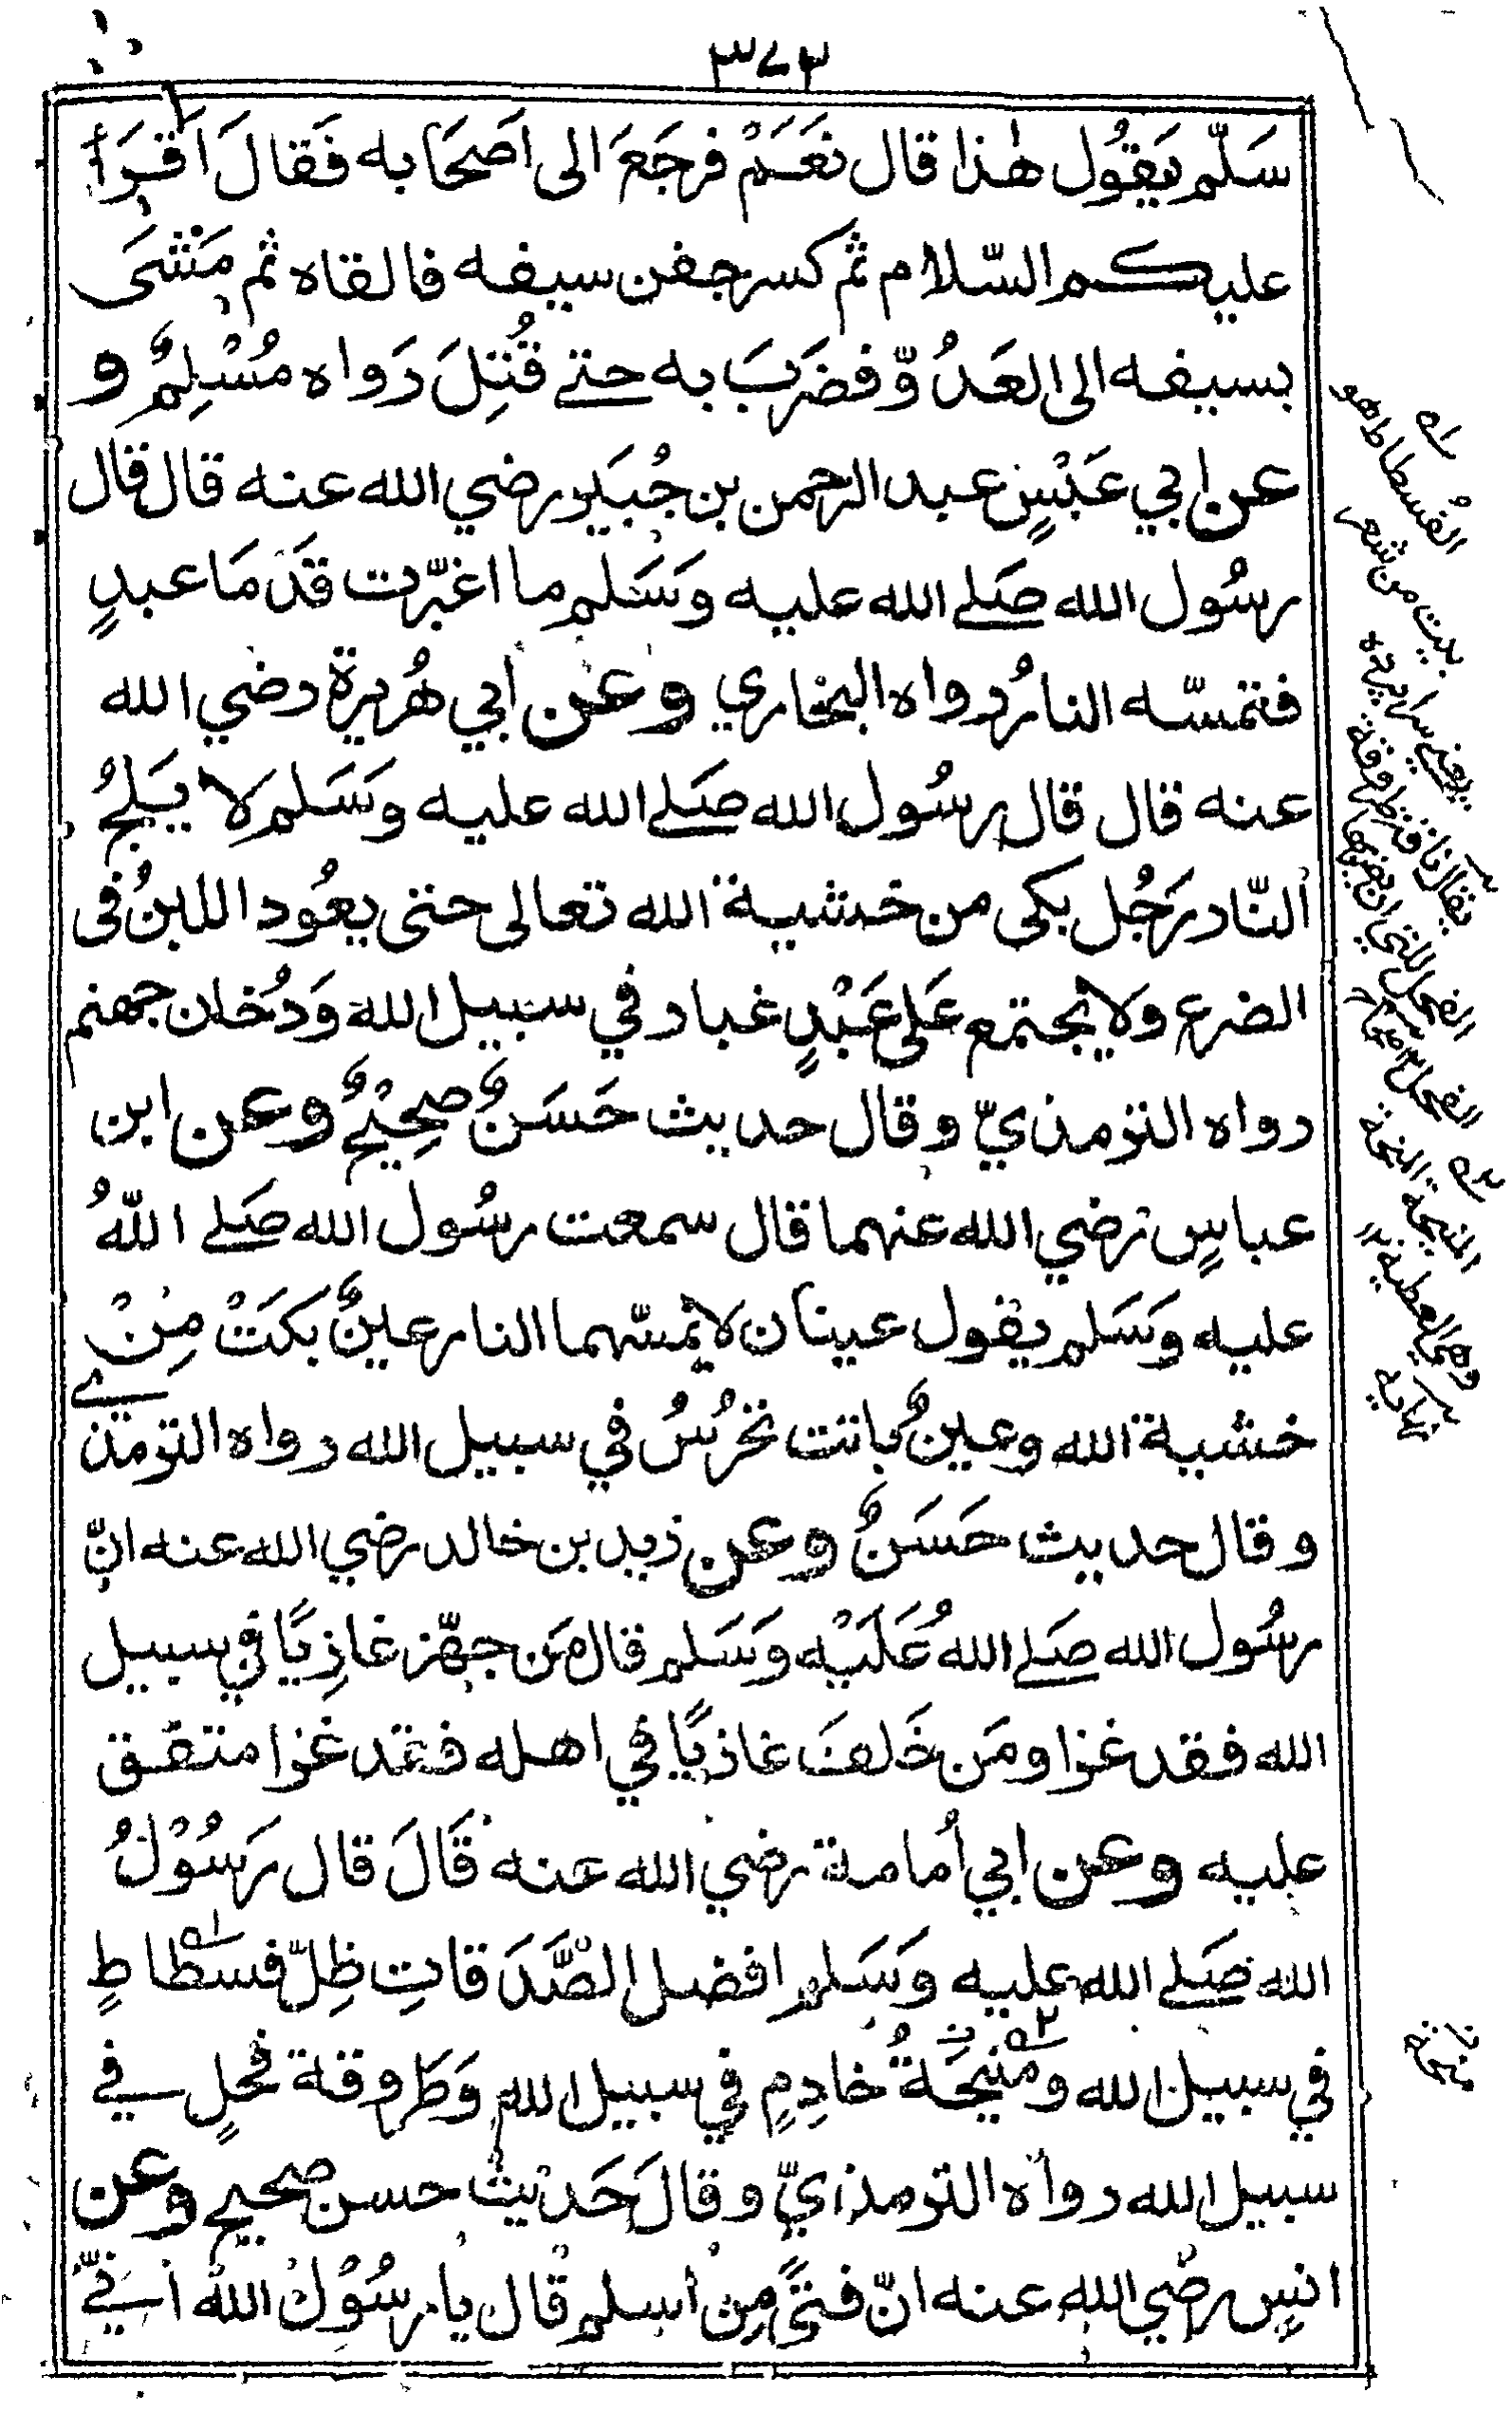 ٣٧٣
سَلّم يَقُول هٰذا قال نَعَمْ فرجَعَ الى اَصحَابه فَقالَ اَقرَأُ
عليكم السّلام ثم كسر جفن سيفه فالقاه ثم مَشٰى
بسيفه الى العَدُوّ فضَرَبَ به حتے قُتِلَ رَواه مُسْلِمٌ و
عن ابي عَبْسٍ عبد الرحمن بن جُبَير رضي الله عنه قال قال
رسُول الله صَلے الله عليه وَسَلم ما اغبّرت قدَمَا عبدٍ
فتمسّه النارُ رواه البخاري وعن ابي هُريرة رضي الله
عنه قال قال رسُول الله صَلے الله عليه وسَلم لا يَلجُ
النّار رَجُل بكى من خشية الله تعالى حتى يعُود اللبنُ فى
الضرع ولا يجتمع عَلى عَبْدٍ غبار في سبيل الله وَدُخان جهنم
رواه الترمذيّ وقال حديث حَسَنٌ صحِيْحٌ وعن ابن
عباسٍ رضي الله عنهما قال سمعت رسُول الله صَلے اللّٰهُ
عليه وَسَلم يقول عينان لا تمسّهما النار عينٌ بكَتْ مِنْ
خشية الله وعينٌ باتت تحرُسُ في سبيل الله رواه الترمذے
وقال حديث حَسَنٌ وعن زيد بن خالد رضي الله عنه انّ
رسُول الله صَلے اللهُ عَلَيْه وَسَلم قال مَن جهّز غازِيًا في سبيل
الله فقد غزا ومَن خَلفَ غازيًا في اهله فقد غزا متفق
عليه وعن ابي أُمامة رضي الله عنه قَالَ قال رَسُوْلُ
الله صَلے الله عليه وَسَلم افضل الصَّدَقاتِ ظِلّ فسطاطٍ
في سبيل الله ومَنيحَةُ خادِمٍ في سبيل الله وَطَروقة فحلٍ في
سبيل الله رواه الترمذيّ وقالَ حَديْث حسن صحيح وعن
انسٍ رضي الله عنه انّ فتىً مِن اسلم قال يا رسُوْلَ الله اني
الفُسطاط هو
بيت من شعر
المنيحة المنحة
وهي العطية
نهاية